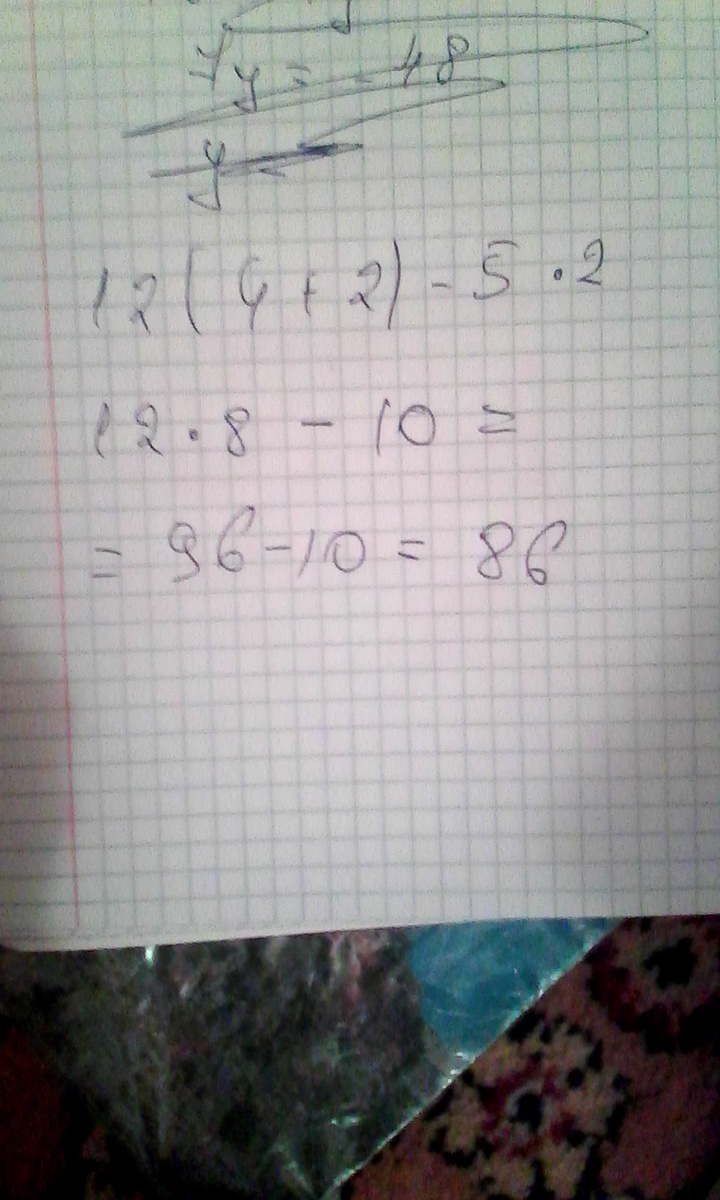 7y = -48
y =
12(4+2)-5·2
12·8 - 10 =
= 96-10 = 86